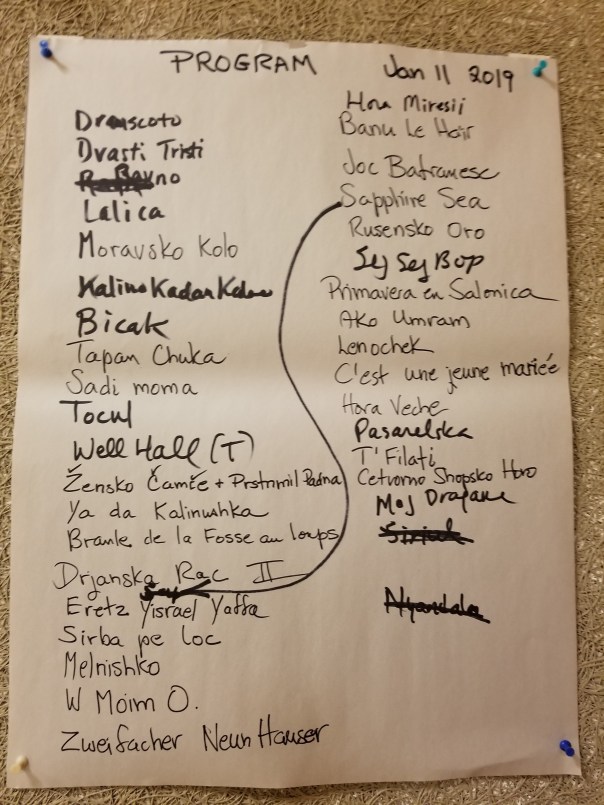 PROGRAM
Jan 11 2019
Dramscoto
Dvasti Tristi
Lalica
Moravsko Kolo
Bicak
Tapan Chuka
Sadi moma
Tocul
Well Hall (T)
Žensko Čamče + Prstnmil Padna
Ya da Kalinushka
Branle de la Fosse au loups
Drjanska Rac II
Eretz Yisrael Yaffa
Sirba pe loc
Melnishko
W Moim O.
Zweifacher Neun Hauser
Hora Miresii
Banu Le Hoir
Joc Batranesc
Sapphire Sea
Rusensko Oro
Sej Sej Bop
Primavera en Salonica
Ako Umram
Lenochek
C'est une jeune mariée
Hora Veche
Pasarelska
T'Filati
Cetvorno Shopsko Horo
Moj Dragane